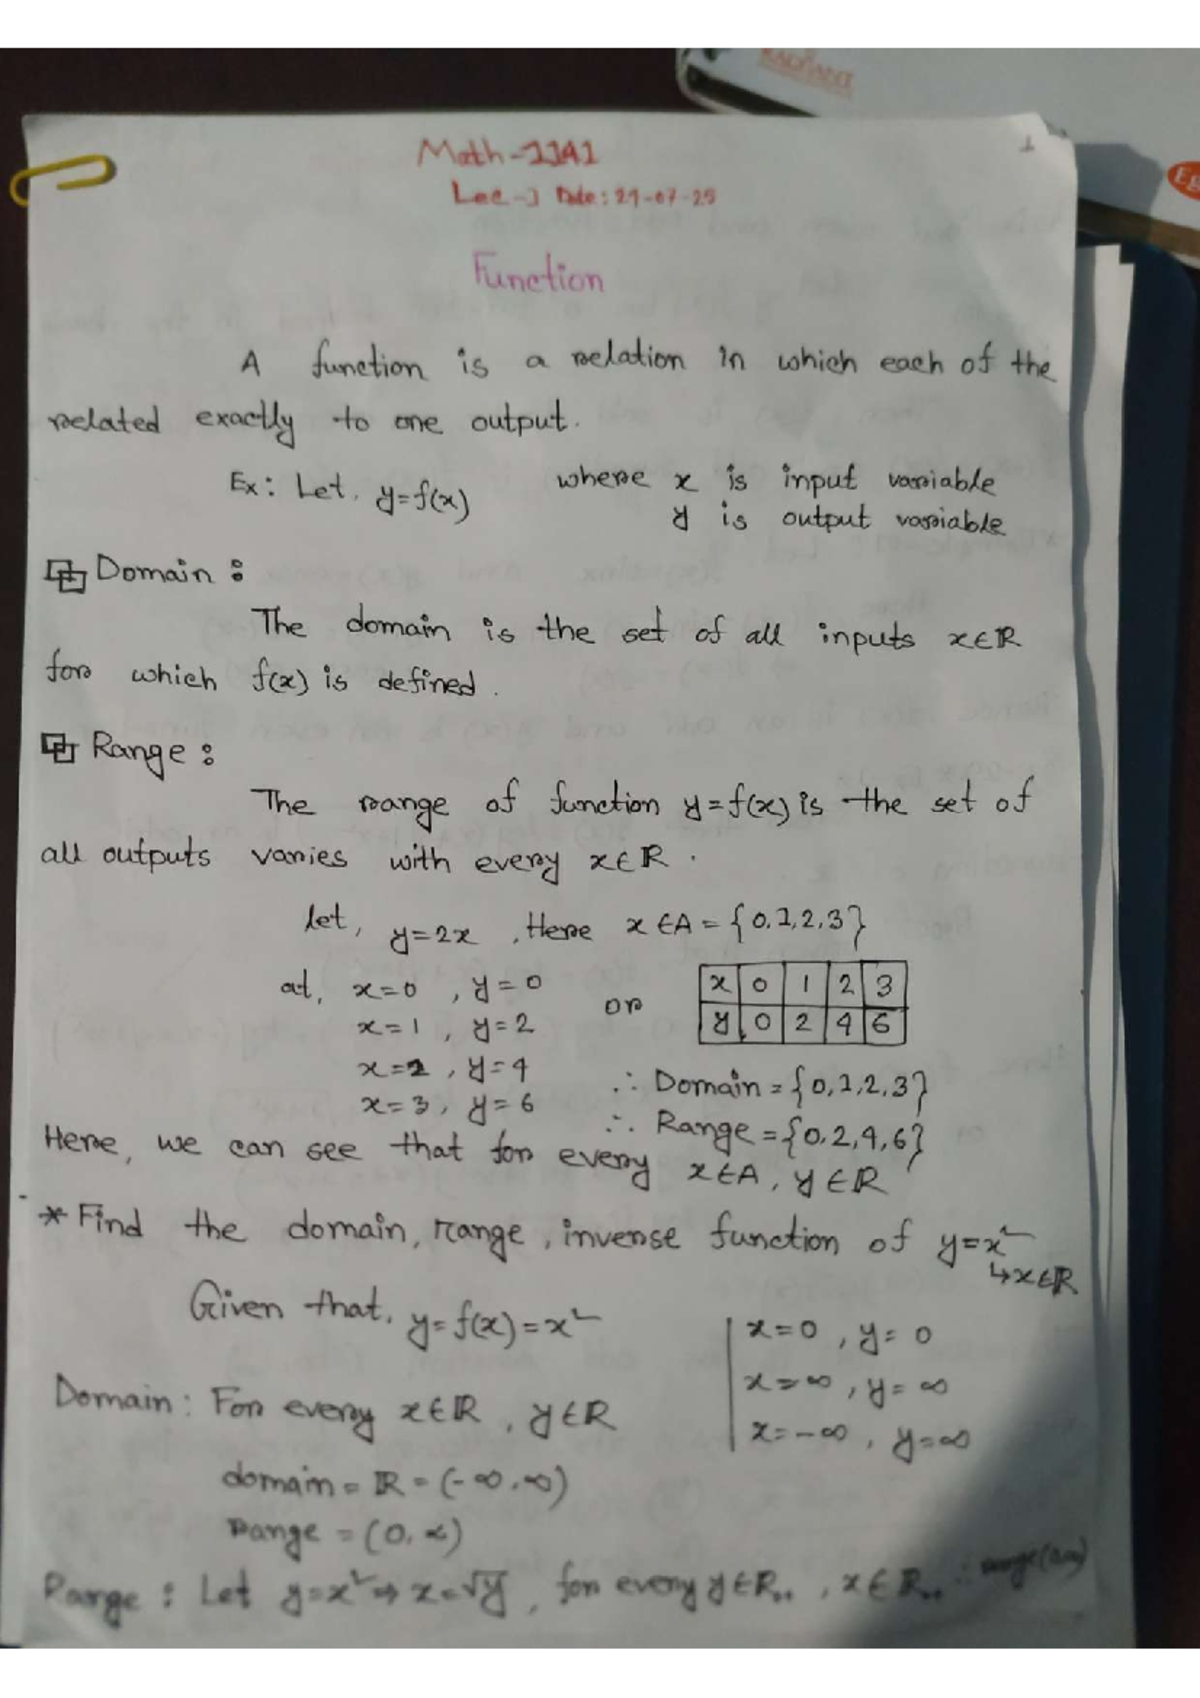 RADIANT
1
Math-1141
Lec-1 Date: 29-07-25
Function
A function is a relation in which each of the
related exactly to one output.
Ex: Let, y=f(x) where x is input variable
y is output variable
Domain:
The domain is the set of all inputs x∈ℝ
for which f(x) is defined.
Range:
The range of function y=f(x) is the set of
all outputs varies with every x∈ℝ.
let, y=2x, Here x∈A={0,1,2,3}
at, x=0, y=0
x=1, y=2
x=2, y=4
x=3, y=6
or
x 0 1 2 3
y 0 2 4 6
∴ Domain={0,1,2,3}
∴ Range={0,2,4,6}
Here, we can see that for every x∈A, y∈ℝ
* Find the domain, range, inverse function of y=x²
↳x∈ℝ
Given that, y=f(x)=x²
x=0, y=0
x=∞, y=∞
x=-∞, y=∞
Domain: For every x∈ℝ, y∈ℝ
domain=ℝ=(-∞,∞)
Range=(0,∝)
Range: Let y=x²⇒x=√y, for every y∈ℝ, x∈ℝ